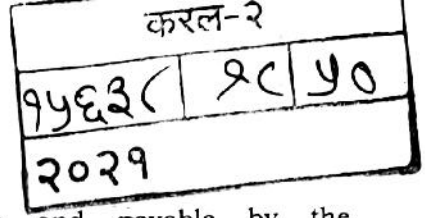 करल-२
१५६३८ १८ ५०
२०२१
and payable by the